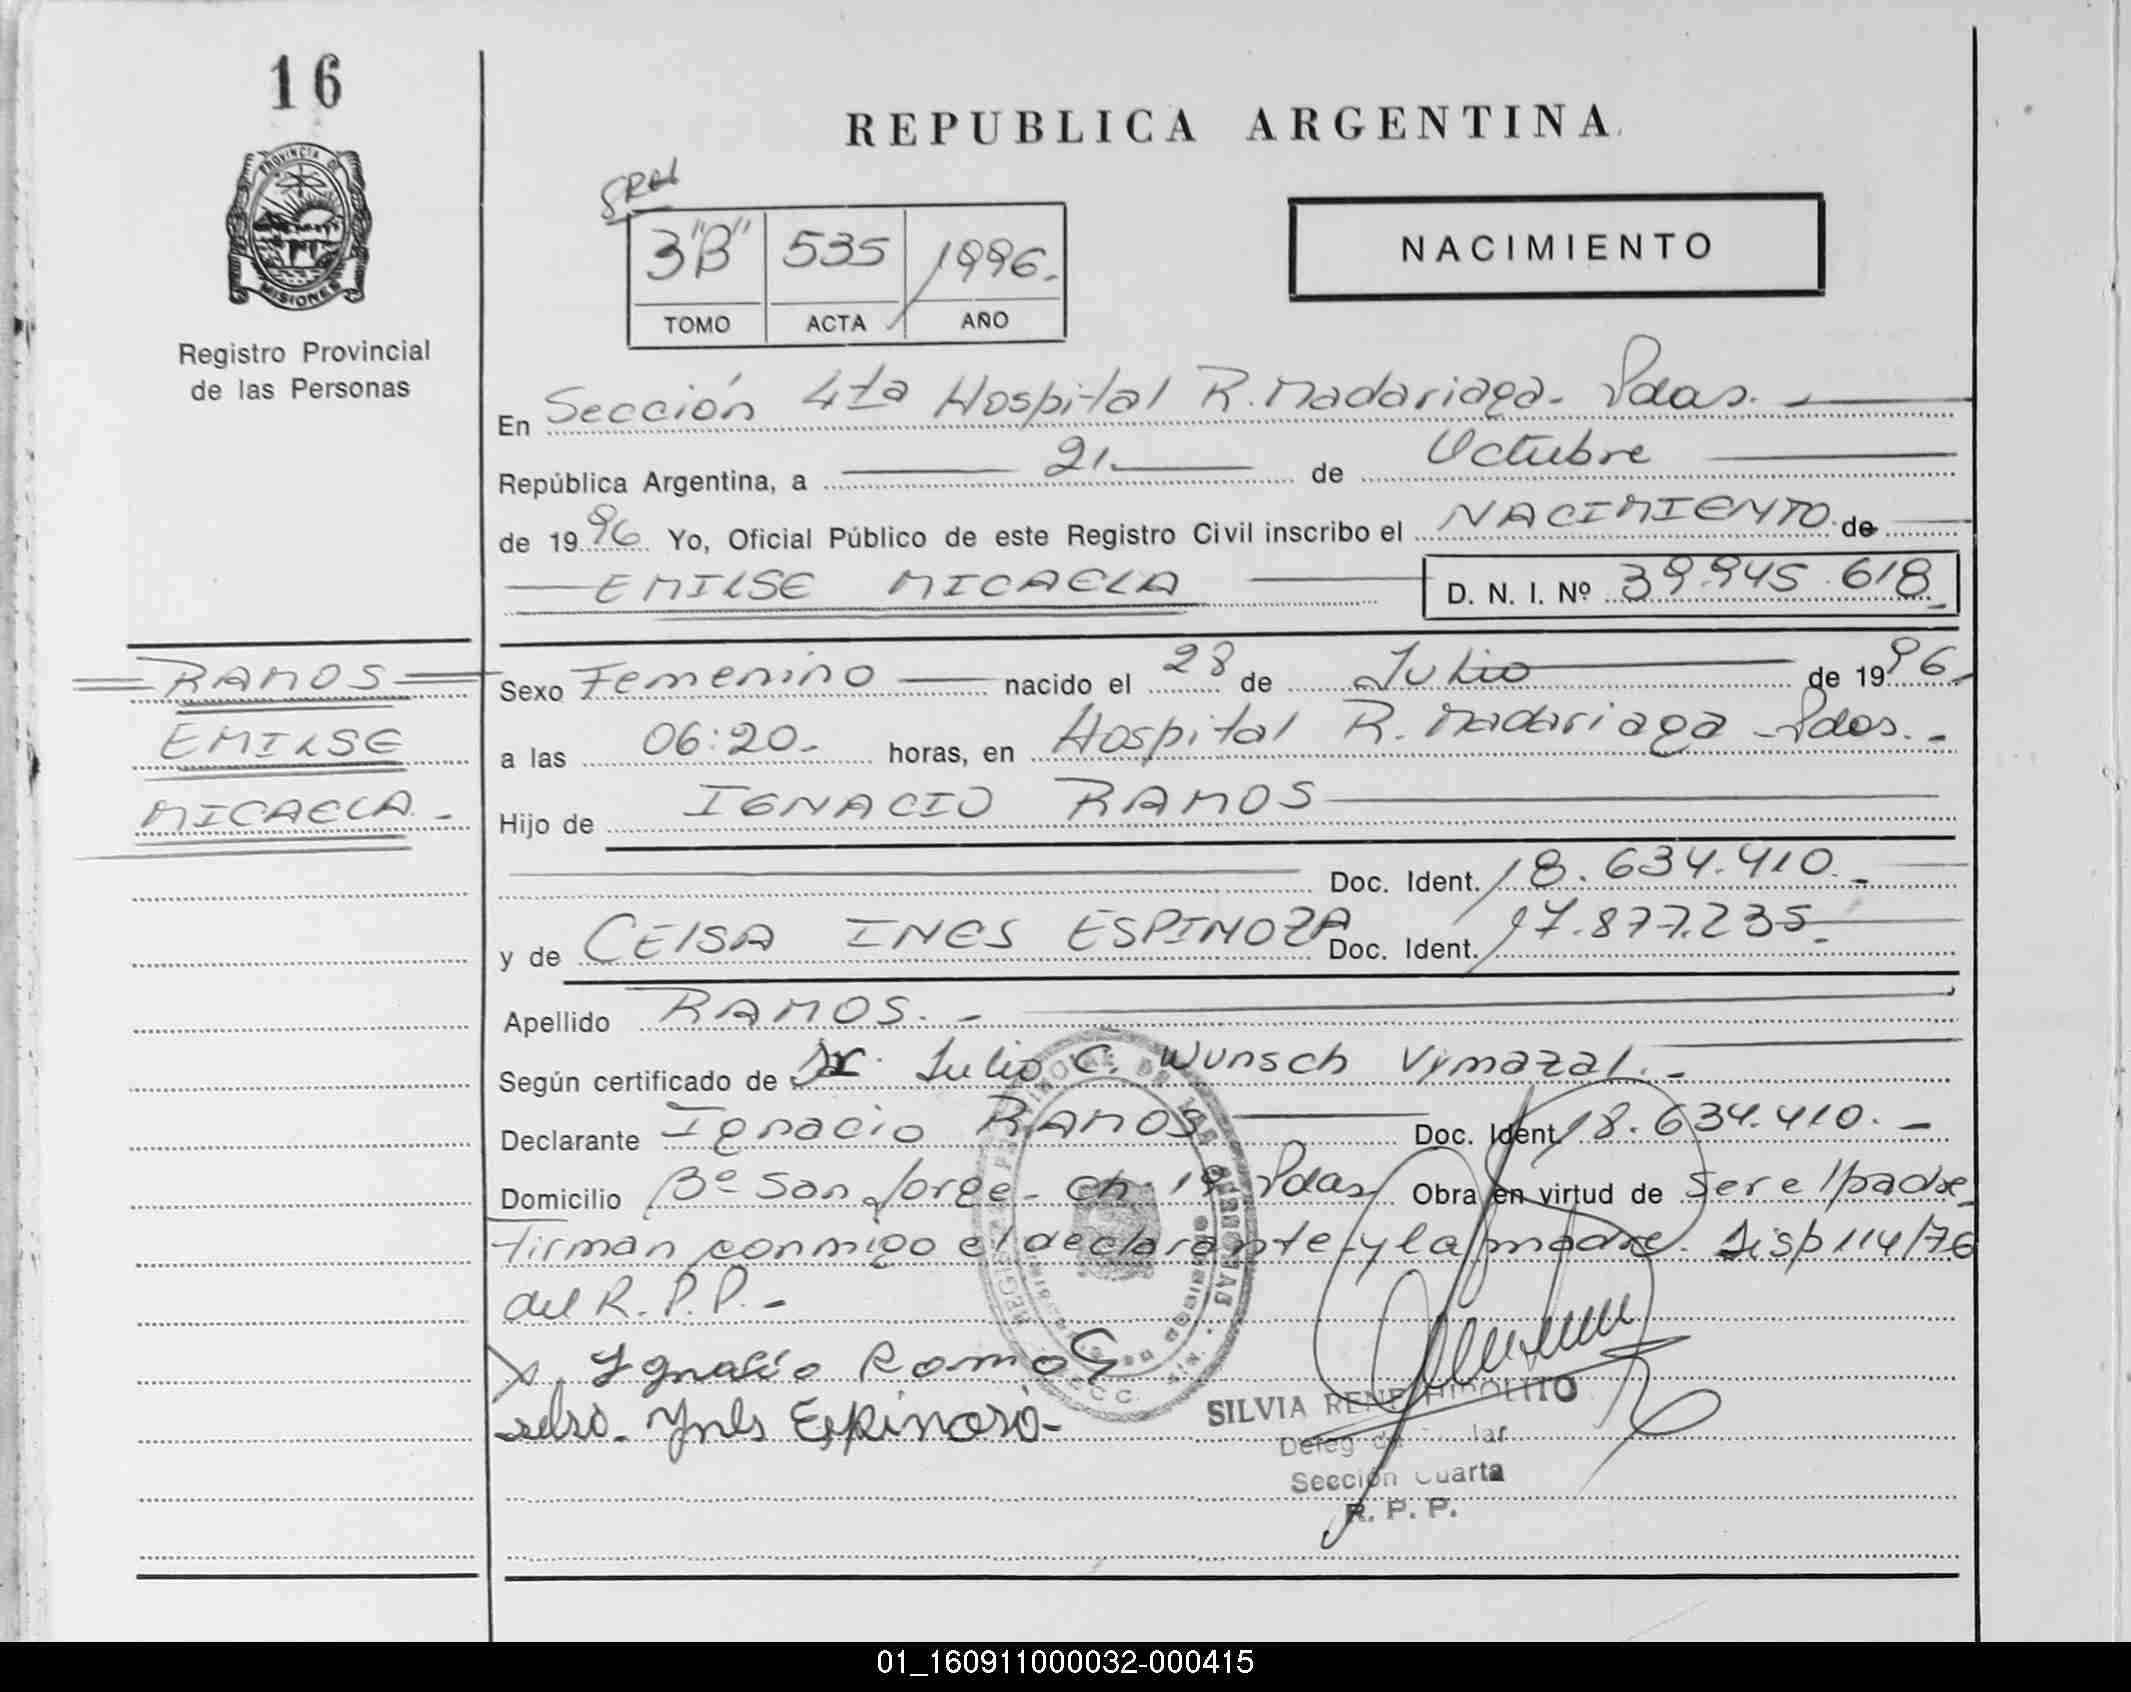 16
REPUBLICA ARGENTINA
PROVINCIA DE
MISIONES
Registro Provincial
de las Personas
3"B" 535 1996.
TOMO ACTA AÑO
NACIMIENTO
En Sección 4ta Hospital R. Madariaga - Pdas. -
República Argentina, a 21 de Octubre
de 1996 Yo, Oficial Público de este Registro Civil inscribo el NACIMIENTO de
EMILSE MICAELA D. N. I. Nº 39.945.618
RAMOS
EMILSE
MICAELA -
Sexo Femenino nacido el 28 de Julio de 1996.
a las 06:20 - horas, en Hospital R. Madariaga - Pdas. -
Hijo de IGNACIO RAMOS
Doc. Ident. 18.634.410. -
y de CELSA INES ESPINOZA Doc. Ident. 17.877.235. -
Apellido RAMOS. -
Según certificado de Dr. Julio C. Wunsch Vymazal. -
Declarante Ignacio RAMOS Doc. Ident. 18.634.410. -
Domicilio Bº San Jorge - ch. 19 Pdas Obra en virtud de Ser el padre
firman conmigo el declarante y la madre. Disp 114/76
del R. P. P. -
X Ignacio Ramos
selsa. Ynes Espinosa -
SILVIA RENE HIPOLITO
Sección Cuarta
R. P. P.
01_160911000032-000415